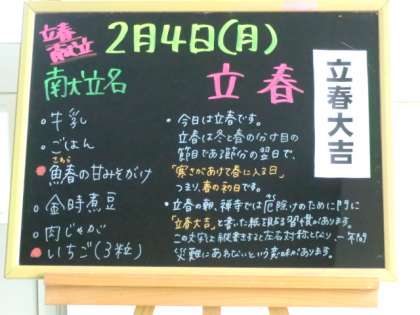 立春
献立
2月4日(月)
献立名
立春
立春大吉
牛乳
ごはん
さわら
魚春の甘みそがけ
金時煮豆
肉じゃが
いちご(3粒)
・今日は立春です。
立春は冬と春の分け目の
節目である節分の翌日で、
「寒さがあけて春に入る日」
つまり、春の初日です。
・立春の朝、禅寺では厄除けのために門に
「立春大吉」と書いた紙を貼る習慣があります。
この文字は縦書きすると左右対称となり、一年間
災難にあわないという意味があります。